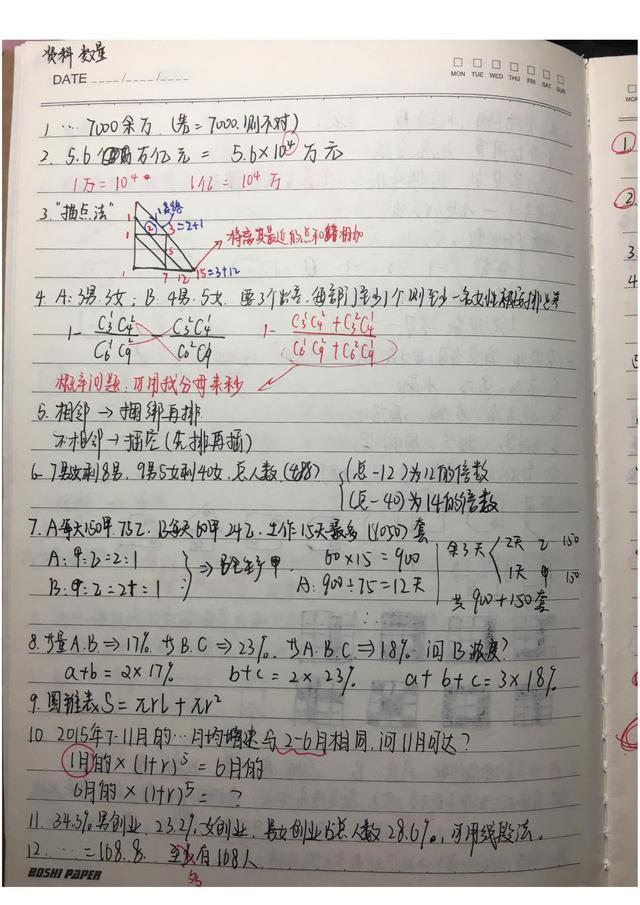 资料 数量
DATE ____/____/____
MON TUE WED THU FRI SAT SUN
1 … 7000余万 (若=7000.1则不对)
2. 5.6万亿元 = 5.6×10⁴ 万元
1万=10⁴ 1亿=10⁴万
3. "描点法"
2 3=2+1
1 1 5
1 7 12 15=3+12
将离其最近的点和线相加
4. A:3男.3女; B:4男.5女. 3个出差.每部门至少1个则至少一名女性被安排出差
1- C₃¹C₄²/C₆¹C₉² - C₃²C₄¹/C₆²C₉¹ 1- (C₃¹C₄²+C₃²C₄¹)/(C₆¹C₉²+C₆²C₉¹)
概率问题.可用找分母来秒
5. 相邻→捆绑再排
不相邻→插空(先排再插)
6. 7男5女剩8男. 9男5女剩40女. 总人数 (总-12)为12的倍数
(总-40)为14的倍数
7. A每天150甲.75乙. B每天60甲24乙. 工作15天最多(1050)套
A:甲:乙=2:1 60×15=900 余3天 2天 乙 150
B:甲:乙=2+:1 ⇒B全生产甲 A:900÷75=12天 1天 甲 150
共900+150套
8. 等量A.B⇒17%. 等B.C⇒23%. 等A.B.C⇒18%. 问B浓度?
a+b=2×17% b+c=2×23% a+b+c=3×18%
9. 圆锥表S=πrl+πr²
10. 2015年7-11月的…月均增速与2-6月相同.问11月可达?
1月的×(1+r)⁵=6月的
6月的×(1+r)⁵= ?
11. 34.3%男创业. 23.2%女创业. 男女创业占总人数28.6%. 可用线段法.
12. … =168.8. 至多有168人
BOSHI PAPER